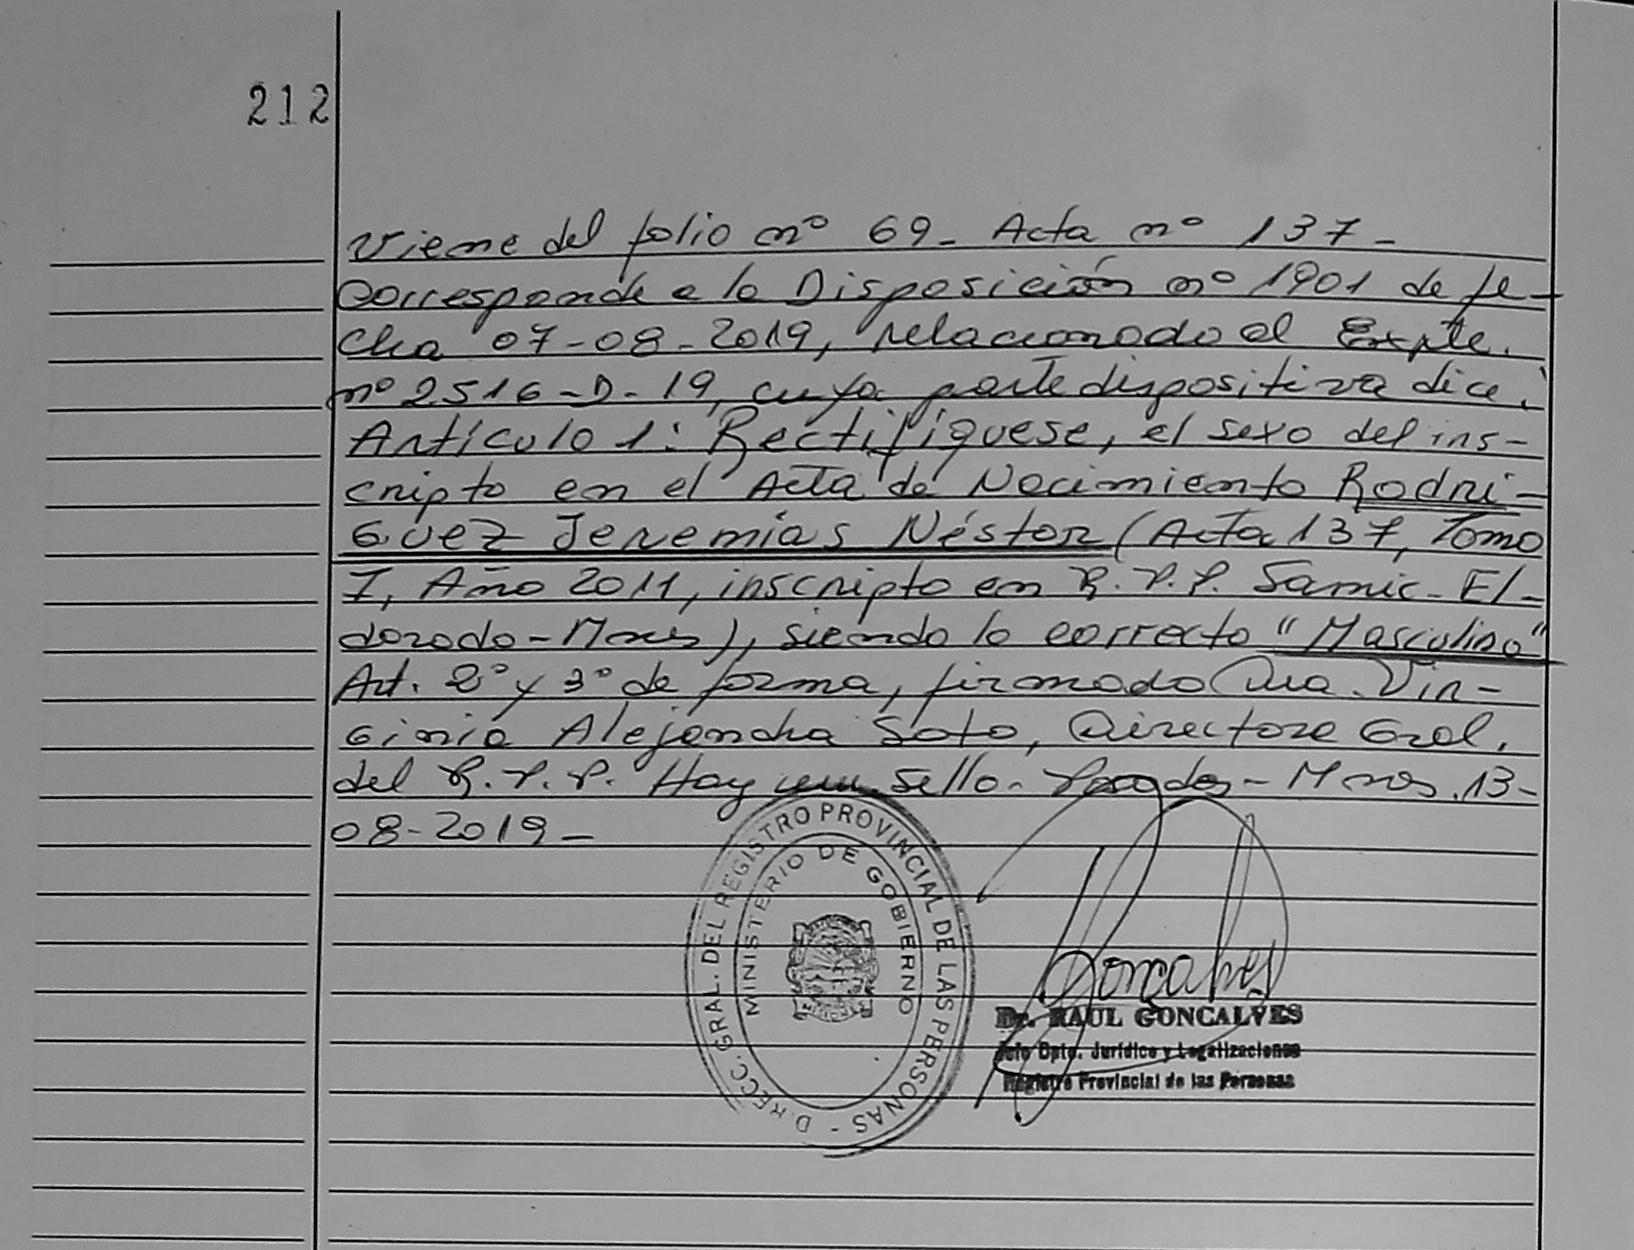 212
Viene del folio nº 69_ Acta nº 137_
Corresponde a la Disposición nº 1901 de fe-
cha 07-08-2019, relacionado al Expte.
nº 2516-D-19, cuya parte dispositiva dice:
Artículo 1: Rectifíquese, el sexo del ins-
cripto en el Acta de Nacimiento Rodri-
guez Jeremías Néstor (Acta 137, Tomo
I, Año 2011, inscripto en R.P.P. Samic-El-
dorado-Mnes), siendo lo correcto "Masculino"
Art. 2º y 3º de forma, firmado Dra. Vir-
ginia Alejandra Soto, Directora Gral.
del R.P.P. Hay un sello. Posadas-Mnes. 13-
08-2019_
DIRECC. GRAL. DEL REGISTRO PROVINCIAL DE LAS PERSONAS -
MINISTERIO DE GOBIERNO
Dr. RAUL GONCALVES
Jefe Dpto. Jurídico y Legalizaciones
Registro Provincial de las Personas